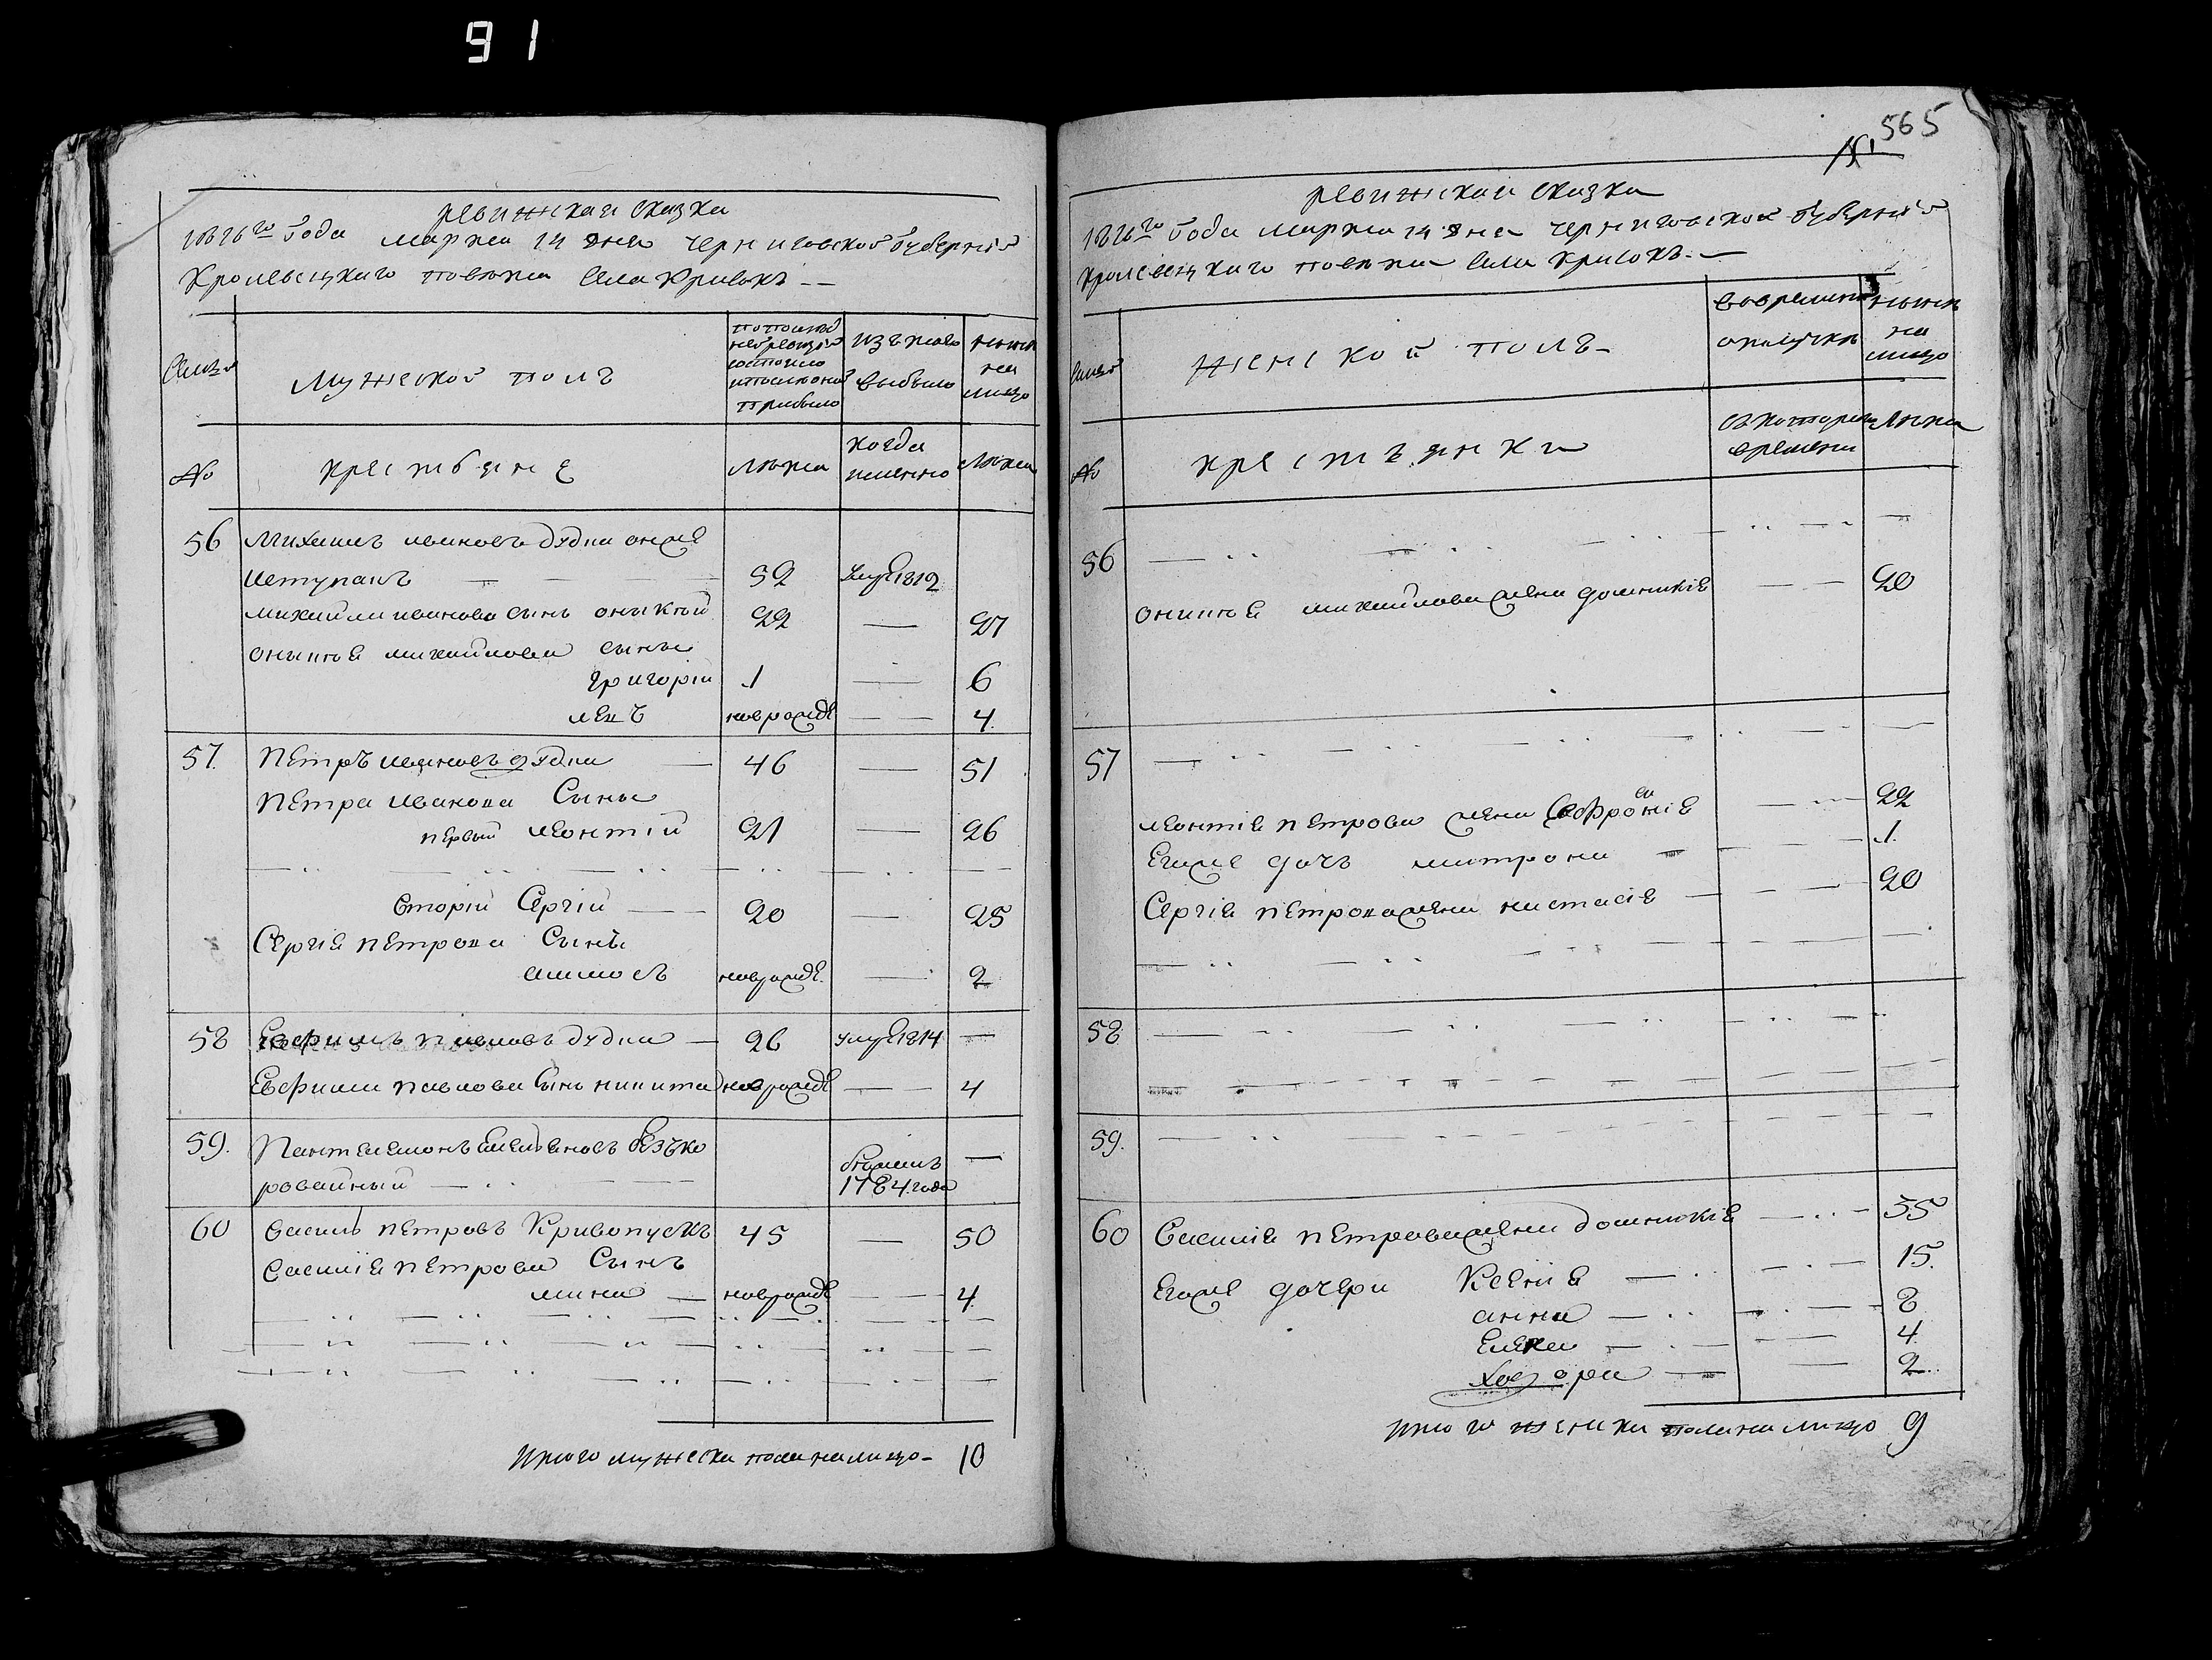 91
ревижская сказка
1816го Года марта 14 дня черниговской Губернiи
Кролевецкаго повѣта Села Кривокъ
Семьи
Мужеской полъ
по последней ревизiи состояло и после оной прибыло
изъ того выбыло
ныне на лицо
№
крестьяне
лѣта
когда именно
лѣта
56 Михаилъ ивановъ дудка онже
52 умре 1812
михайла иванова сынъ оныктый 22 — 27
оныктея михайлова сыны
григорiй 1 — 6
левъ новрожде — 4.
57. Петръ ивановъ дудка — 46 — 51
Петра иванова Сыны
первый леонтiй 21 — 26
вторiй Сергiй — 20 — 25
Сергiя петрова Сынъ
амносъ новрожде. — 2
58 Евфимъ павловъ дудка — 26 умре 1814 —
Евфима павлова Сынъ никита новрожде — 4
59. Пантелемонъ Емельяновъ безъко
ровайный — бежалъ 1784 года —
60 Василь петровъ Кривопускъ 45 — 50
Василiя петрова Сынъ
мина — новрожде — 4.
Итого мужеска пола налицо — 10
565
ревижская сказка
1816го Года марта 14 дня черниговской Губернiи
кролевецкаго повѣта Села Кривокъ
Семьи
женской полъ
вовременной отлучке
ныне на лицо
№
крестьянки
съ которого времени
лѣта
56
оныктея михайлова жена домникiя — 20
57
леонтiя петрова жена Софронiя — 22
Егоже дочь матрона — 1.
Сергiя петрова жена настасiя — 20
58
59.
60 Василiя петрова жена домникiя — 35
Егоже дочери Ксенiя — 15.
анна — 8
Елена — 4.
Хведора — 2.
Итого женска пола на лицо 9